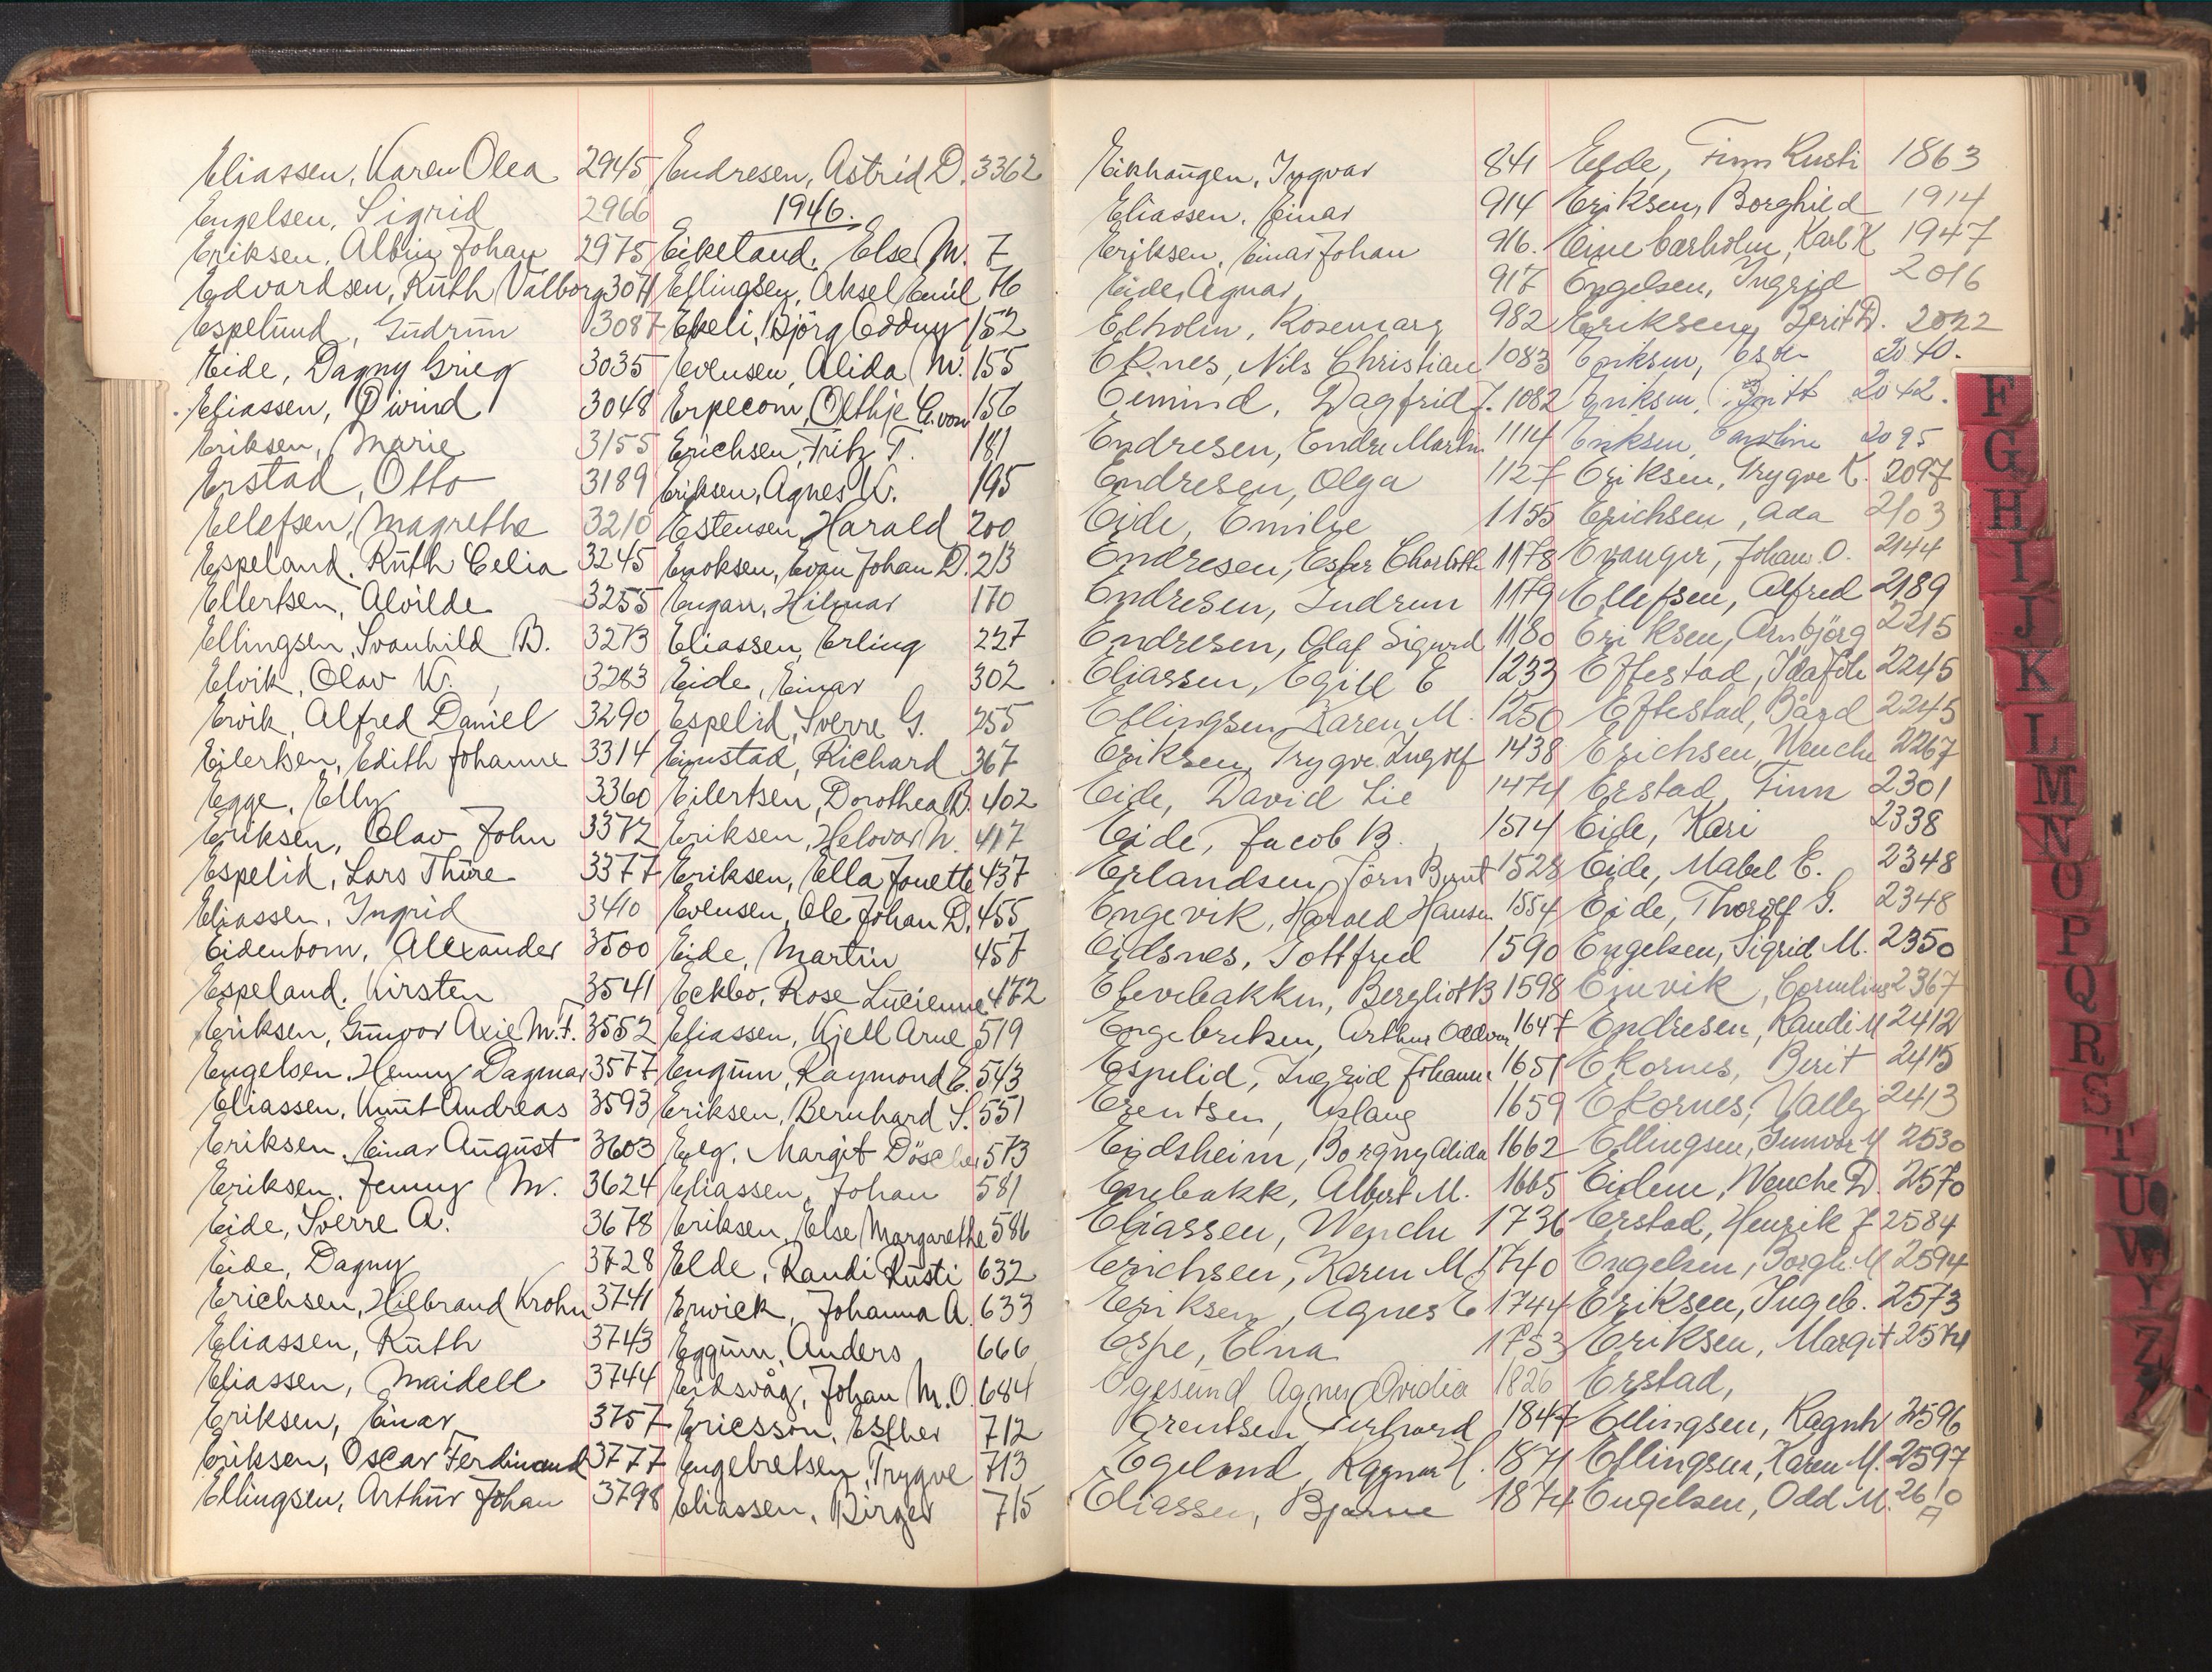 Eliassen, Karen Olea 2945
Engelsen, Sigrid 2966
Eriksen, Albin Johan 2975
Edvardsen, Ruth Valborg 3071
Espelund, Gudrun 3087
Eide, Dagny Grieg 3035
Eliassen, Øivind 3048
Eriksen, Marie 3155
Erstad, Otto 3189
Ellefsen, Magrethe 3210
Espeland, Ruth Celia 3245
Ellertsen, Alvilde 3255
Ellingsen, Svanhild B. 3273
Elvik, Olav K. 3283
Ervik, Alfred Daniel 3290
Eilertsen, Edith Johanne 3314
Egge, Elly 3360
Eriksen, Olav John 3372
Espelid, Lars Thure 3377
Eliassen, Ingrid 3410
Eidenbom, Alexander 3500
Espeland, Kirsten 3541
Eriksen, Gunvor Axie M.F. 3552
Engelsen, Henny Dagmar 3577
Eliassen, Knut Andreas 3593
Eriksen, Einar August 3603
Eriksen, Jenny M. 3624
Eide, Sverre A. 3678
Eide, Dagny 3728
Erichsen, Hilbrand Krohn 3741
Eliassen, Ruth 3743
Eliassen, Maidell 3744
Eriksen, Einar 3757
Eriksen, Oscar Ferdinand 3777
Ellingsen, Arthur Johan 3798
Endresen, Astrid D. 3362
1946.
Eikeland, Else M. 7
Ellingsen, Aksel Emil 76
Ekeli, Bjørg Oddny 152
Evensen, Alida M. 155
Erpecom, C. von 156
Erichsen, Fritz T. 181
Eriksen, Agnes K. 195
Estensen, Harald 200
Enoksen, Evan Johan D. 213
Engan, Hilmar 170
Eliassen, Erling 227
Eide, Einar 302
Espelid, Sverre G. 255
Einstad, Richard 367
Eilertsen, Dorothea B. 402
Eriksen, N. 417
Eriksen, Ella Jonette 437
Evensen, Ole Johan D. 455
Eide, Martin 457
Eckbo, Rose Lucienne 472
Eliassen, Kjell Arne 519
Engum, Raymond E. 543
Eriksen, Bernhard S. 551
Eeg, Margit Döscher 573
Eliassen, Johan 581
Eriksen, Else Margarethe 586
Elde, Randi Rusti 632
Erwick, Johanna A. 633
Eggum, Anders 666
Eidsvåg, Johan M.O. 684
Ericsson, Esther 712
Engebretsen, Trygve 713
Eliassen, Birger 715
Eikhaugen, Ingvar 841
Eliassen, Einar 914
Eriksen, Einar Johan 916.
Eide, Agnar 917
Elholm, Rosemary 982
Eknes, Nils Christian 1083
Eimind, Dagfrid J. 1082
Endresen, Endre Martin 1114
Endresen, Olga 1127
Eide, Emilie 1155
Endresen, Ester Charlotte 1178
Endresen, Gudrun 1179
Endresen, Olaf Sigurd 1180
Eliassen, Egill E 1233
Ellingsen Karen M. 1250
Eriksen, Trygve Ingolf 1438
Eide, David Lie 1474
Eide, Jacob B. 1514
Erlandsen, Jørn Bernt 1528
Engevik, Harald Hansen 1554
Eidsnes, Gottfred 1590
Elvebakken, Bergliot B 1598
Engebriksen, Arthur Oddvar 1647
Espelid, Ingrid Johanne 1651
Erentsen, Aslaug 1659
Eidsheim, Borgny Alida 1662
Enebakk, Albert M. 1665
Eliassen, Wenche 1736
Erichsen, Karen M. 1740
Eriksen, Agnes E 1744
Espe, Elna 1753
Egesund Agnes Ovidia 1826
Erentsen Gerhard 1847
Egeland, Ragnar H. 1871
Eliassen, Bjarne 1874
Elde, Finn Rusti 1863
Eriksen, Borghild 1914
Karl K 1947
Engelsen, Ingrid 2016
Eriksen, Berit D. 2022
Eriksen, 2040.
Eriksen, Britt 2042.
Eriksen, Caroline 2095
Eriksen, Trygve K. 2097
Erichsen, Ada 2103
Evanger, Johan O. 2144
Ellefsen, Alfred 2189
Eriksen, Arnbjørg 2215
Eftestad, 2245
Eftestad, Bård 2245
Erichsen, Wenche 2267
Erstad, Finn 2301
Eide, Kari 2338
Eide, Mabel E. 2348
Eide, Thorolf G. 2348
Engelsen, Sigrid M. 2350
Einvik, Cornelius 2367
Endresen, Randi M 2412
Ekornes, Berit 2415
Ekornes, Vally 2413
Ellingsen, Gunvor M 2530
Eidem, Wenche D. 2570
Erstad, Henrik J 2584
Engelsen, Borgh. M 2594
Eriksen, Ingeb. 2573
Eriksen, Margit 2574
Erstad,
Ellingsen, Ragnh 2596
Ellingsen, Karen M. 2597
Engelsen, Odd M. 2610
A
F
G
H
I
J
K
L
M
N
O
P
Q
R
S
T
U
W
Y
Z